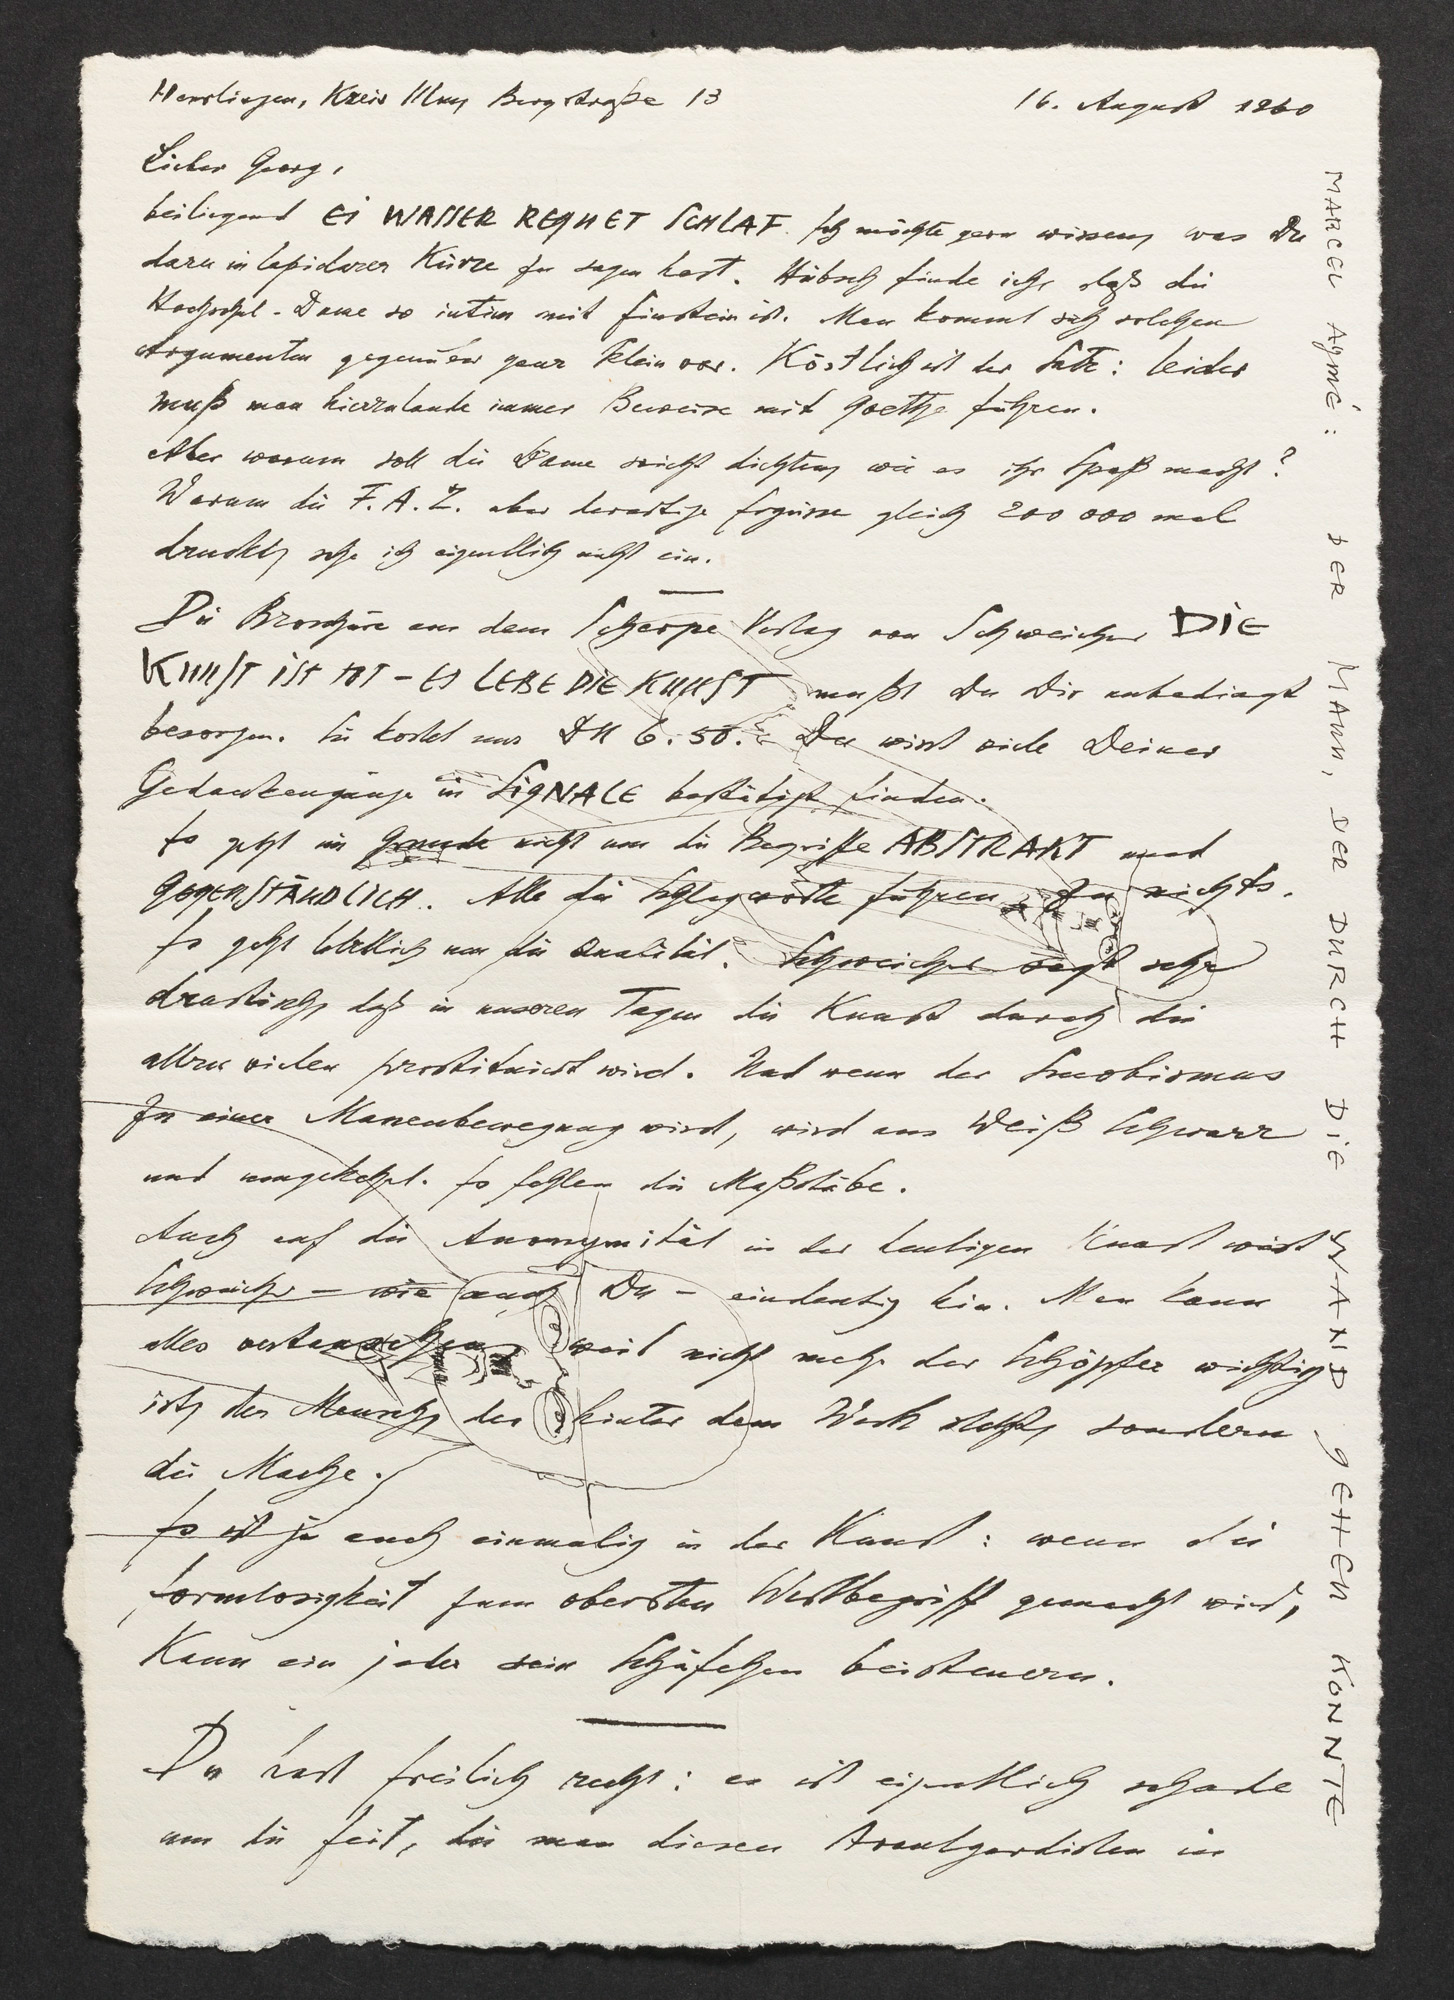 Herrlingen, Kreis Ulm, Bergstraße 13
16. August 1960
Lieber Georg,
beiliegend EI WASSER REGNET SCHLAF. Ich möchte gern wissen, was Du
dazu in lapidarer Kürze zu sagen hast. Hübsch finde ich, daß die
Dame so intim mit Einstein ist. Man kommt sich solchen
Argumenten gegenüber ganz klein vor. Köstlich ist der Satz: leider
muß man hierzulande immer Beweise mit Goethe führen.
Aber warum soll die Dame nicht dichten, wie es ihr Spaß macht?
Warum die F.A.Z. aber derartige Ergüsse gleich 200 000 mal
druckt, sehe ich eigentlich nicht ein.
Die Broschüre aus dem Scherpe Verlag von Schweicher DIE
KUNST IST TOT – ES LEBE DIE KUNST mußt Du Dir unbedingt
besorgen. Sie kostet nur DM 6.50. Du wirst viele Deiner
Gedankengänge in SIGNALE bestätigt finden.
Es geht im Grunde nicht um die Begriffe ABSTRAKT und
GEGENSTÄNDLICH. Alle die Schlagworte führen zu nichts.
Es geht letztlich um die Qualität. Schweicher sagt sehr
drastisch, daß in unseren Tagen die Kunst durch die
allzu vielen prostituiert wird. Und wenn der Snobismus
zu einer Massenbewegung wird, wird aus Weiß Schwarz
und umgekehrt. Es fehlen die Maßstäbe.
Auch auf die Anonymität in der heutigen Kunst weist
Schweicher – wie auch Du – eindeutig hin. Man kann
alles vertauschen, weil nicht mehr der Schöpfer wichtig
ist, der Mensch, der hinter dem Werk steht, sondern
die Mache.
Es ist ja auch einmalig in der Kunst: wenn die
Formlosigkeit zum obersten Wertbegriff gemacht wird,
kann ein jeder sein Schäfchen beisteuern.
Du hast freilich recht: es ist eigentlich schade
um die Zeit, die man diesen Avantgardisten in
MARCEL AYMÉ: DER MANN, DER DURCH DIE WAND GEHEN KONNTE